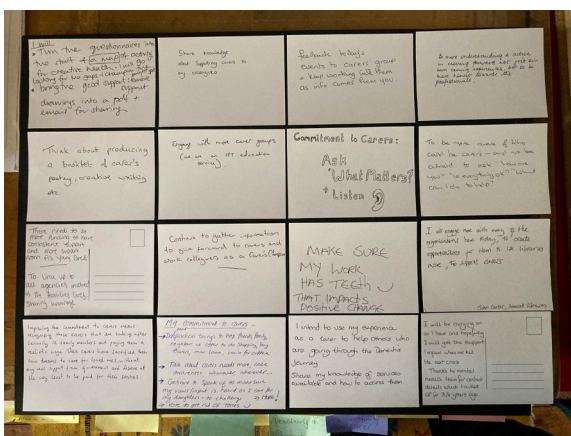 I will:
• Turn the questionnaires into
the start of a map of activity
for creative health. I will go
looking for the gaps + champion
• bring the good support
drawings into a pdf +
email for sharing.
Share knowledge
about supporting carers to
my
Feedback today's
events to carers' group
+ keep working with them
as info comes from you.
understanding & active
in moving forward not just our
own caring experiences, but to be
professionals
Think about producing
a booklet of carer's
poetry, creative writing
etc.
Engage with more carer groups
(we are an education
service)
Commitment to Carers:
Ask
"What Matters?"
+ Listen
To be more aware of who
could be carers – and not be
afraid to ask "how are
you" "is everything ok?" "What
can I do to help"
There needs to be
more funding to have
consistent support
and not worn
from six years lived.
To link up to
all agencies invited
Continue to gather information
to give forward to carers and
work colleagues as a Carers Champion
MAKE SURE
MY WORK
HAS TEETH
THAT IMPACTS
POSITIVE CHANGE
I will engage more with many of the
organisations here today, to create
opportunities for them to use libraries
more, to support carers
Improving the commitment to carers means
recognising those carers that are looking after
family members and paying them a
realistic wage. These carers have sacrificed
their dreams to care for loved ones, without
any real support from government and deserve at
the very least to be paid for their services.
My commitment to carers –
→ Do practical things to help friends, family,
neighbours ie offer to do shopping, buy
flowers, mow lawn, invite for coffee
→ Talk about carers needs more, raise
awareness whenever, wherever
→ Continue to speak up to make sure
my voice/input is heard as I care for
my daughters – to challenge
+ vote to get rid of Tories
I intend to use my experience
as a carer to help others who
are going through the Dementia
Journey
Share my knowledge of services
available and how to access them.
I will be enquiring on
as I have and hopefully
I will get the support
I expect when we hit
the next crisis
Thanks to mental
health team for contact
details which I waited
for 3½ years ago.